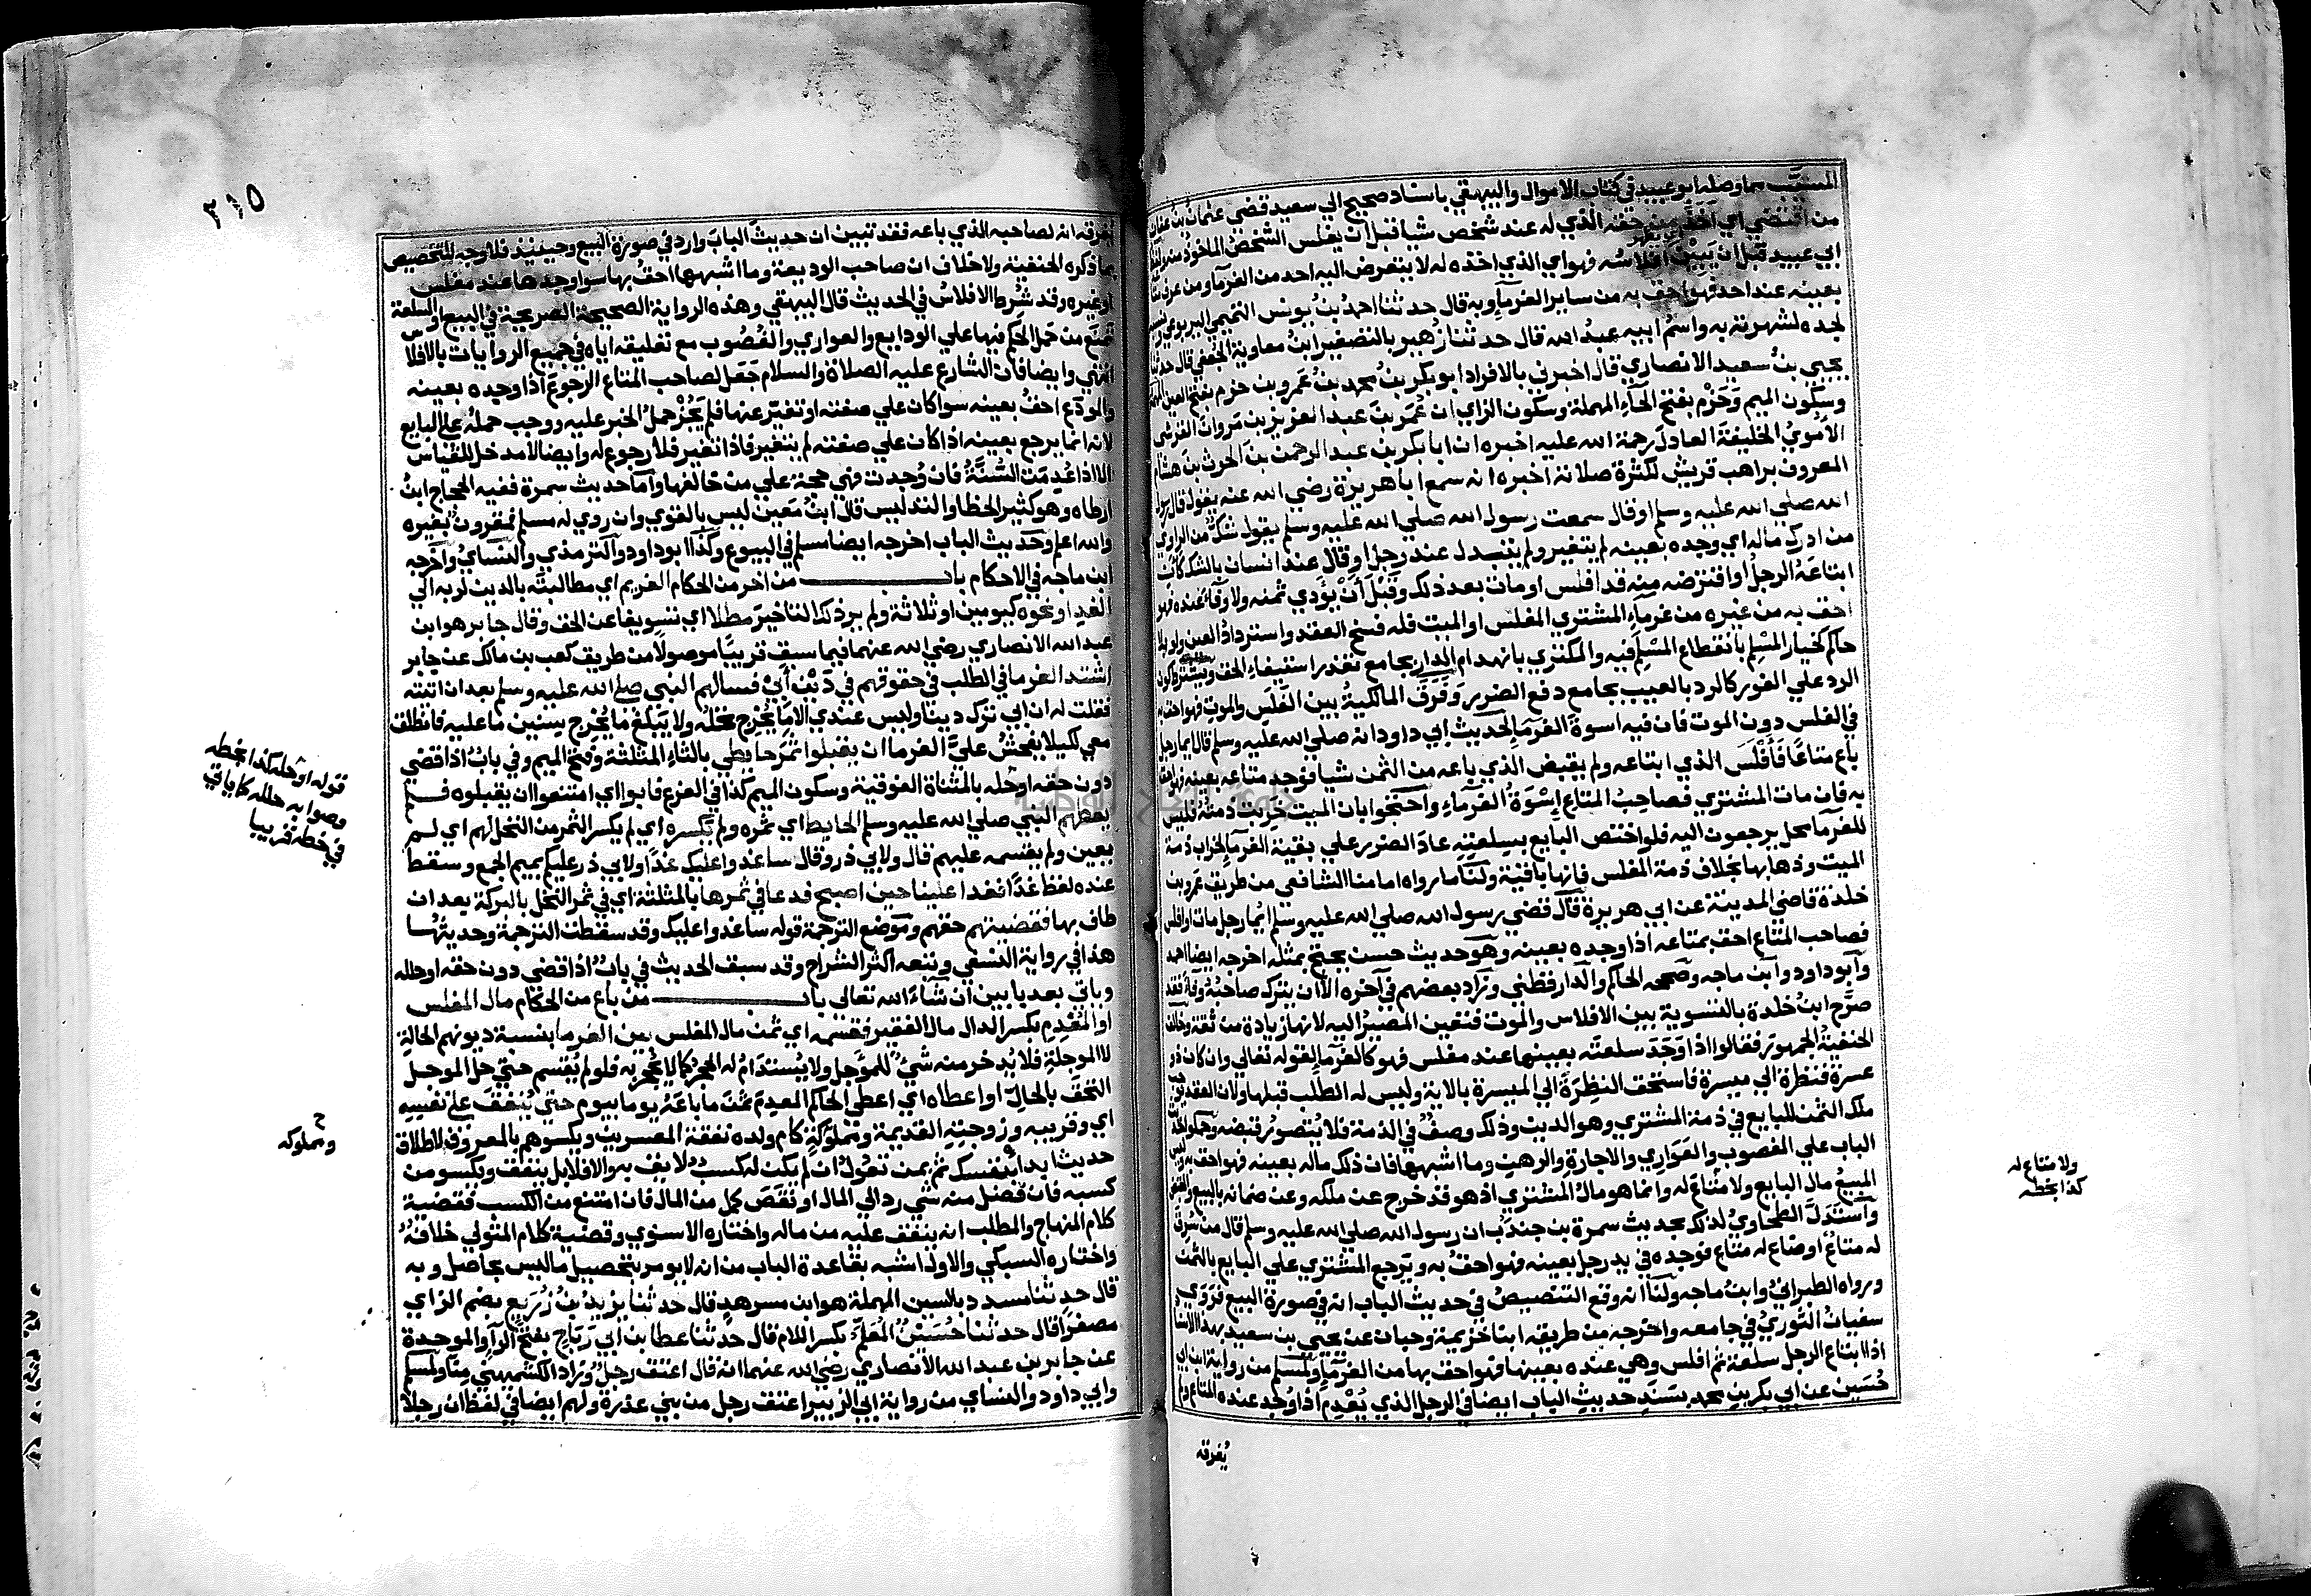 المسيب مما وصله ابو عبيد في كتاب الاموال والبيهقي باسناد صحيح الي سعيد قضي عثمان بن عفان
من اقتضي اي اخذ من حقه الذي له عند شخص شيا قبل ان يفلس الشخص الماخوذ منه
ابي عبيد قبل ان يتبين افلاسه فهو اي الذي اخذه له لا يتعرض اليه احد من الغرما ومن عرف متاعه
بعينه عند احد فهو احق به من ساير الغرما وبه قال حدثنا احمد بن يونس التميمي اليربوعي
لجده لشهرته به واسم ابيه عبد الله قال حدثنا زهير بالتصغير ابن معاوية الجعفي قال حدثنا
يحيي بن سعيد الانصاري قال اخبرني بالافراد ابو بكر بن محمد بن عمرو بن حزم بفتح العين
وسكون الميم وحزم بفتح الحاء المهملة وسكون الزاي ان عمر بن عبد العزيز بن مروان القرشي
الاموي الخليفة العادل رحمة الله عليه اخبره ان ابا بكر بن عبد الرحمن بن الحرث بن هشام
المعروف براهب قريش لكثرة صلاته اخبره انه سمع ابا هريرة رضي الله عنه يقول قال رسول
الله صلي الله عليه وسلم او قال سمعت رسول الله صلي الله عليه وسلم يقول شك من الراوي
من ادرك ماله اي وجده بعينه لم يتغير ولم يتبدل عند رجل او قال عند انسان بالشك كان
ابتاعه الرجل او اقترضه منه قد افلس او مات بعد ذلك وقبل ان يؤدي ثمنه ولا وفا عنده فهو
احق به من غيره من غرماء المشتري المفلس او الميت فله فسخ العقد واسترداد العين ولو بلا
حاكم كخيار المسلم بانقطاع المسلم فيه والمكتري بانهدام الدار بجامع تعذر استيفاء الحق ويشترط كون
الرد علي الفور كالرد بالعيب بجامع دفع الضرر وفرق المالكية بين الفلس والموت فهو احق به
في الفلس دون الموت فان فيه اسوة الغرما لحديث ابي داود انه صلي الله عليه وسلم قال ايما رجل
باع متاعا فافلس الذي ابتاعه ولم يقبض الذي باعه من الثمن شيا فوجد متاعه بعينه فهو احق
به فان مات المشتري فصاحب المتاع اسوة الغرماء واحتجوا بان الميت خربت ذمته فليس
للغرما محل يرجعون اليه فلو اختص البايع بسلعته عاد الضرر علي بقية الغرما لخراب ذمة
الميت وذهابها بخلاف ذمة المفلس فانها باقية ولنا ما رواه امامنا الشافعي من طريق عمرو بن
خلدة قاضي المدينة عن ابي هريرة قال قضي رسول الله صلي الله عليه وسلم ايما رجل مات او افلس
فصاحب المتاع احق بمتاعه اذا وجده بعينه وهو حديث حسن يحتج بمثله اخرجه ايضا احمد
وابو داود وابن ماجه وصححه الحاكم والدارقطني وزاد بعضهم في اخره الا ان يترك صاحبه وفا فقد
صرح ابن خلدة بالتسوية بين الافلاس والموت فتعين المصير اليه لانها زيادة من ثقة وخالف
الحنفية الجمهور فقالوا اذا وجد سلعته بعينها عند مفلس فهو كالغرما لقوله تعالي وان كان ذو
عسرة فنظرة الي ميسرة فاستحق النظرة الي الميسرة بالاية وليس له الطلب قبلها ولان العقد يوجب
ملك الثمن للبايع في ذمة المشتري وهو الدين وذلك وصف في الذمة فلا يتصور قبضه وحملوا حديث
الباب علي المغصوب والعواري والاجارة والرهن وما اشبهها فان ذلك ماله بعينه فهو احق به وليس
المبيع مال البايع ولا متاع له وانما هو مال المشتري اذ هو قد خرج عن ملكه وعن ضمانه بالبيع والقبض
واستدل الطحاوي لذلك بحديث سمرة بن جندب ان رسول الله صلي الله عليه وسلم قال من سرق
له متاع او ضاع له متاع فوجده في يد رجل بعينه فهو احق به ويرجع المشتري علي البايع بالثمن
ورواه الطبراني وابن ماجه ولنا انه وقع التنصيص في حديث الباب انه في صورة البيع فروي
سفيان الثوري في جامعه واخرجه من طريقه ابنا خزيمة وحبان عن يحيي بن سعيد بهذا الاسناد
اذا ابتاع الرجل سلعة ثم افلس وهي عنده بعينها فهو احق بها من الغرما ولمسلم من رواية ابن ابي
حسين عن ابي بكر بن محمد بسند حديث الباب ايضا في الرجل الذي يعدم اذا وجد عنده المتاع ولم
يفرقه
ولا متاع له
كذا بخطه
٣١٥
يفرقه انه لصاحبه الذي باعه فقد تبين ان حديث الباب وارد في صورة البيع وحينيذ فلا وجه للتخصيص
بما ذكره الحنفية ولا خلاف ان صاحب الوديعة وما اشبهها احق بها سوا وجدها عند مفلس
او غيره وقد شرط الافلاس في الحديث قال البيهقي وهذه الرواية الصحيحة الصريحة في البيع او السلعة
تمنع من حمل الحكم فيها علي الودايع والعواري والغصوب مع تعليقه اياه في جميع الروايات بالافلاس
انتهي وايضا فان الشارع عليه الصلاة والسلام جعل لصاحب المتاع الرجوع اذا وجده بعينه
والمودع احق بعينه سوا كان علي صفته او تغير عنها فلم يجز حمل الخبر عليه ووجب حمله علي البايع
لانه انما يرجع بعينه اذا كان علي صفته لم يتغير فاذا تغير فلا رجوع له وايضا لا مدخل للقياس
الا اذا عدمت السنة فان وجدت فهي حجة علي من خالفها واما حديث سمرة ففيه الحجاج ابن
ارطاه وهو كثير الخطا والتدليس قال ابن معين ليس بالقوي وان روي له مسلم فمقرون بغيره
والله اعلم وحديث الباب اخرجه ايضا مسلم في البيوع وكذا ابو داود والترمذي والنساي واخرجه
ابن ماجه في الاحكام باب من اخر من الحكام الغريم اي مطالبته بالدين لربه الي
الغد او نحوه كيومين او ثلاثة ولم ير ذلك التاخير مطلا اي تسويفا عن الحق وقال جابر هو ابن
عبد الله الانصاري رضي الله عنهما فيما سبق قريبا موصولا من طريق كعب بن مالك عن جابر
اشتد الغرما في الطلب في حقوقهم في دين ابي فسالهم النبي صلي الله عليه وسلم بعد ان اتيته
فقلت له ان ابي ترك دينا وليس عندي الا ما يخرج نخله ولا يبلغ ما يخرج سنين ما عليه فانطلق
معي لكيلا يفحش علي الغرما ان يقبلوا ثمر حايطي بالثاء المثلثة وفتح الميم وفي باب اذا قضي
دون حقه او حله بالمثناة الفوقية وسكون الميم كذا في الفرع فابوا اي امتنعوا ان يقبلوه فلم
يعطهم النبي صلي الله عليه وسلم الحايط اي ثمره ولم يكسره اي لم يكسر الثمر من النخل لهم اي لم
يعين ولم يقسمه عليهم قال ولابي ذر وقال ساغدوا عليك غدا ولابي ذر عليكم بميم الجمع وسقط
عنده لفظ غدا فغدا علينا حين اصبح فدعا في ثمرها بالمثلثة اي في ثمر النخل بالبركة بعد ان
طاف بها فقضيتهم حقهم وموضع الترجمة قوله ساغدوا عليك وقد سقطت الترجمة وحديثها
هذا في رواية النسفي وتبعه اكثر الشراح وقد سبق الحديث في باب اذا قضي دون حقه او حلله
وياتي بعد بابين ان شاء الله تعالي باب من باع من الحكام مال المفلس
او المعدم بكسر الدال مال الفقير فقسمه اي ثمن مال المفلس بين الغرما بنسبة ديونهم الحالة
لا الموجلة فلا يدخر منه شي للموجل ولا يستدام له الحجر كما لا يحجر به فلو لم يقسم حتي حل الموجل
التحق بالحال او اعطاه اي اعطي الحاكم المعدم ثمن ما باعه يوما بيوم حتي ينفق علي نفسه
اي وقريبه وزوجته القديمة ومملوكه كام ولده نفقة المعسرين ويكسوهم بالمعروف لاطلاق
حديث ابدا بنفسك ثم بمن تعول ان لم يكن له كسب لا يفي به والا فلا بل ينفق ويكسو من
كسبه فان فضل منه شي رد الي المال او نقص كمل من المال فان امتنع من الكسب فقضية
كلام المنهاج والمطلب انه ينفق عليه من ماله واختاره الاسنوي وقضية كلام المتولي خلافه
واختاره السبكي والاول اشبه بقاعدة الباب من انه لا يومر بتحصيل ما ليس بحاصل وبه
قال حدثنا مسدد بالسين المهملة هو ابن مسرهد قال حدثنا يزيد بن زريع بضم الزاي
مصغرا قال حدثنا حسين المعلم بكسر اللام قال حدثنا عطا بن ابي رباح بفتح الرا والموحدة
عن جابر بن عبد الله الانصاري رضي الله عنهما انه قال اعتق رجل وزاد الكشميهني منا ولمسلم
وابي داود والنساي من رواية ابي الزبير اعتق رجل من بني عذرة ولهم ايضا في لفظ ان رجلا
قوله او حله كذا بخطه
وصوابه حلله كما ياتي
في خطه قريبا
ومملوكه